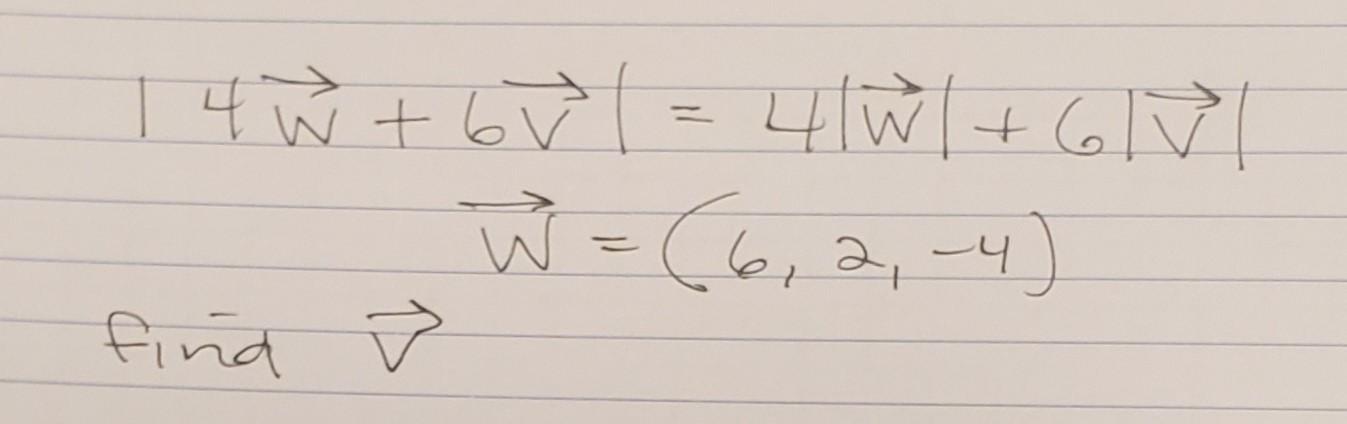 |4w⃗ + 6v⃗| = 4|w⃗| + 6|v⃗|
w⃗ = (6, 2, -4)
find v⃗